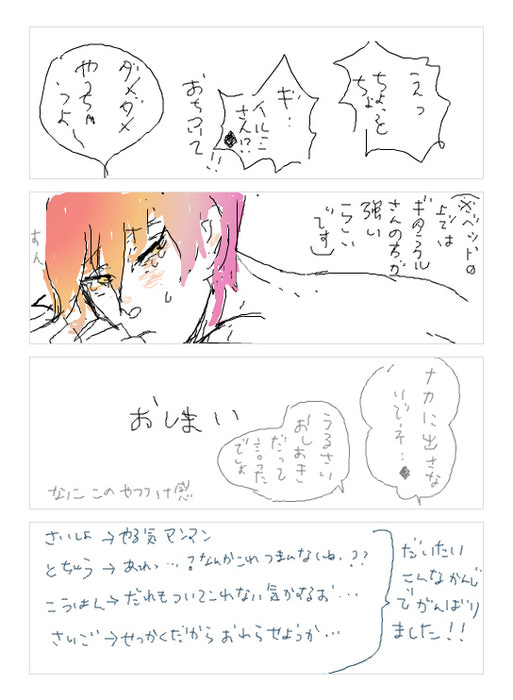 えっ
ちょっと
ちょ
ギ…
イルミ
さん!?
おちついて
!!
ダメダメ
やっちゃ
うよー
(※ベットの
上では
ギタラクル
さんの方が
強い
らしい
です)
すん
ナカに出さな
いでネ…
うるさい
おしおき
だって
言った
でしょ
おしまい
なにこのやっつけ感
さいしょ→やる気マンマン
とちゅう→あれっ…?なんかこれつまんなくね、??
こうはん→だれもついてこれない気がするお…
さいご→せっかくだからおわらせようか…
だいたい
こんなかんじ
でがんばり
ました!!